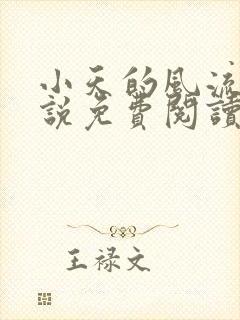 小天的风流
說免費閱讀
王禄文